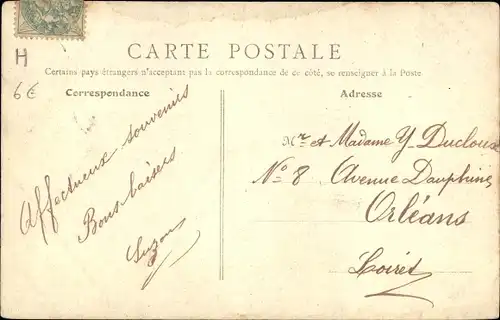 H
6€
CARTE POSTALE
Certains pays étrangers n'acceptant pas la correspondance de ce côté, se renseigner à la Poste
Correspondance
Adresse
Affectueux souvenirs
Bons baisers
Suzon
Mr et Madame Y. Ducloux
No 8 Avenue Dauphine
Orléans
Loiret